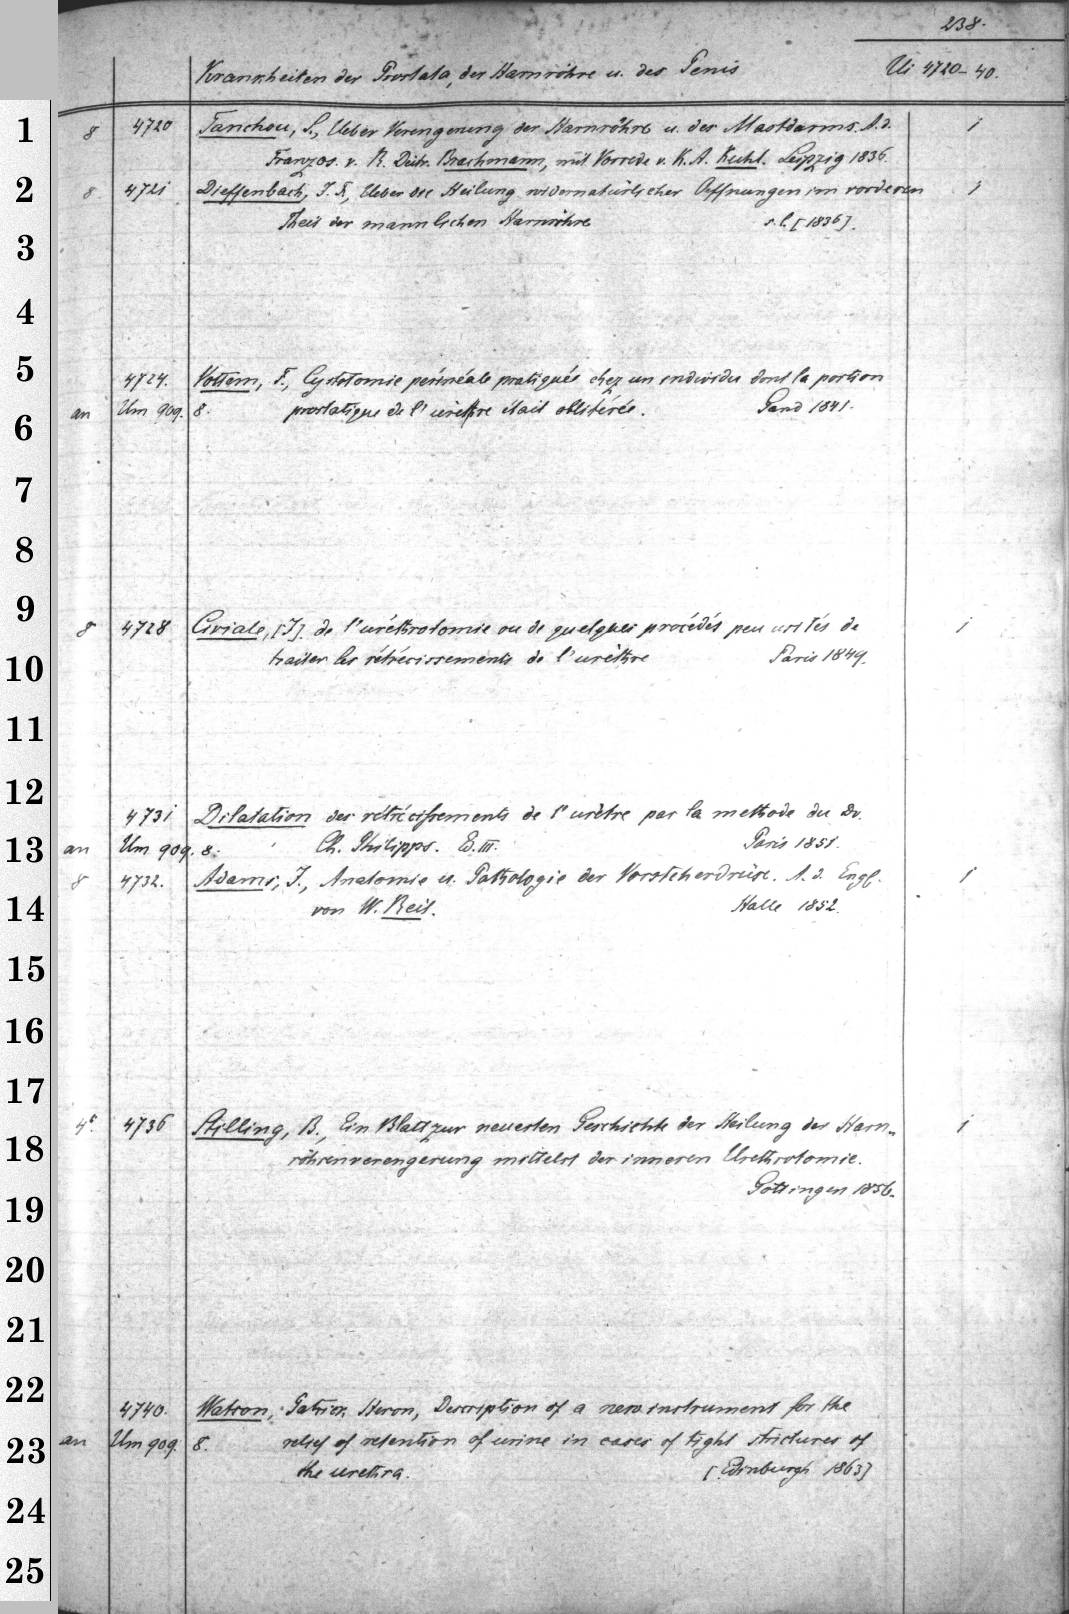 238.
Krankheiten der Prostata, der Harnröhre u. des Penis Ui 4720-40.
1 8 4720 Tanchou, S., Ueber Verengerung der Harnröhre u. des Mastdarms. A. d. 1
Französ. v. R. Deutr. Brachmann, mit Vorrede v. K. A. Kuhl. Leipzig 1836.
2 8 4721 Dieffenbach, J. F., Ueber die Heilung widernatürlicher Oeffnungen im vorderen 1
Theil der mannlichen Harnröhre s. l. [1836].
3
4
5 4724. Vottem, F., Cystotomie périnéale pratiqués chez un individu dont la portion
6 an Um 909. 8. prostatique de l'urèthre était oblitérée. Gand 1841.
7
8
9 8 4728 Civiale, [J] de l'uréthrotomie ou de quelques procédés peu usités de 1
10 traiter les rétrécissements de l'urèthre Paris 1849.
11
12 4731 Dilatation des rétrécissements de l'urètre par la methode du Dr.
13 an Um 909. 8. Ch. Philipps. Ed. III. Paris 1851.
8 4732. Adams, J., Anatomie u. Pathologie der Vorsteherdrüse. A. d. Engl. 1
14 von W. Reil. Halle 1852.
15
16
17
18 4° 4736 Stilling, B., Ein Blatt zur neuesten Geschichte der Heilung der Harn- 1
röhrenverengerung mittelst der inneren Urethrotomie.
19 Göttingen 1856.
20
21
22 4740. Watson, Patrick Heron, Description of a new instrument for the
23 an Um 909. 8. relief of retention of urine in cases of tight strictures of
the urethra. [Edinburgh 1863]
24
25